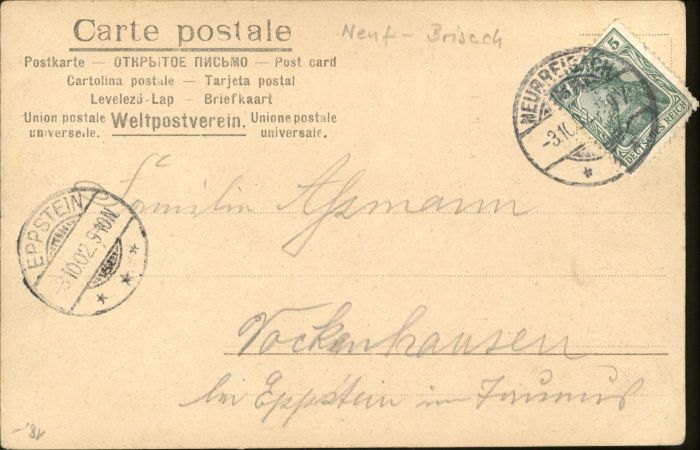 Carte postale
Neuf-Brisach
Postkarte — ОТКРЫТОЕ ПИСЬМО — Post card
Cartolina postale — Tarjeta postal
Levelező-Lap — Briefkaart
Union postale universelle. Weltpostverein. Unione postale universale.
NEUBREISACH
-3.10.
5
DEUTSCHES REICH
EPPSTEIN
3.10.02. 9-10N
Familie Assmann
Vockenhausen
bei Eppstein im Taunus
18,-